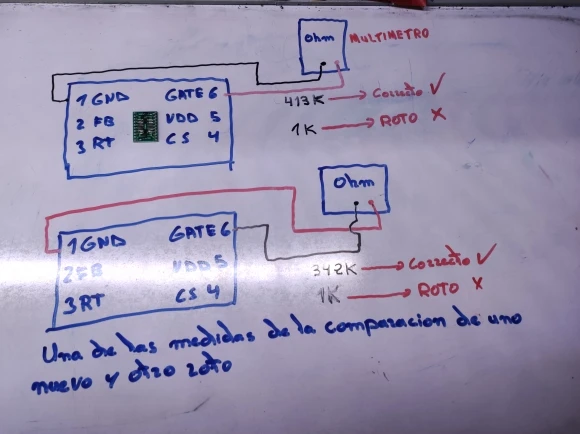 Ohm MULTIMETRO
1 GND GATE 6
2 FB VDD 5
3 RT CS 4
413K → Correcto ✓
1K → ROTO X
Ohm
1 GND GATE 6
2 FB VDD 5
3 RT CS 4
342K → Correcto ✓
1K → ROTO X
Una de las medidas de la comparacion de uno
nuevo y otro roto